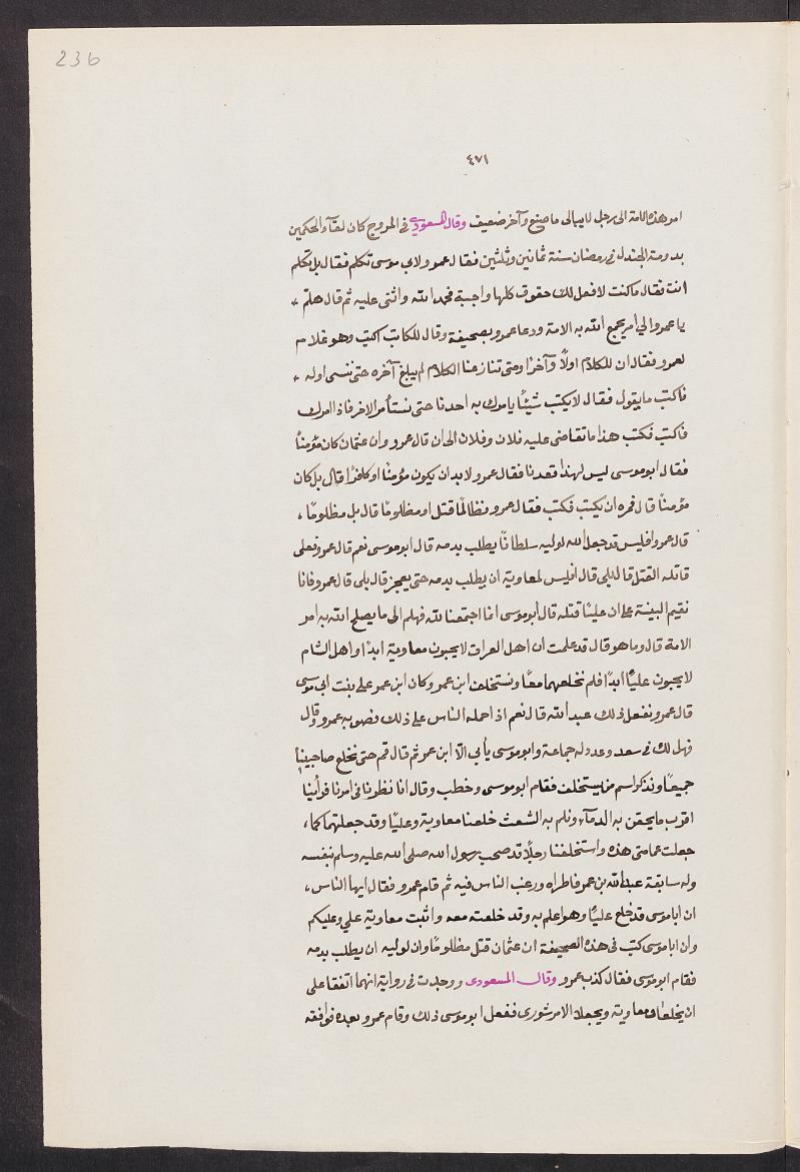 236
٤٧١
امر هذه الامة الى رجل لا يبالى ما صنع وآخر ضعيف وقال المسعودي فى المروج كان لقآء الحكمين
بدومة الجندل فى رمضان سنة ثمانين وثلثين فقال عمرو لابى موسى تكلم فقال بل تكلم
انت فقال ما كنت لافعل لك حقوق كلها واجبة فحمد الله واثنى عليه ثم قال هلمّ
يا عمرو الي امر يجمع الله به الامة ودعا عمرو بصحيفة وقال للكاتب اكتب وهو غلام
لعمرو فقال ان للكلام اولاً وآخرًا ومتى تنازعنا الكلام لم يبلغ آخره حتى ننسى اوله
فاكتب ما يقول فقال لا يكتب شيئًا يامرك به احدنا حتى نستأمر الاخر فاذا امرك
فاكتب فكتب هذا ما تقاضى عليه فلان وفلان الى ان قال عمرو وان عثمان كان مؤمنًا
فقال ابو موسى ليس لهذا قعدنا فقال عمرو لا بد ان يكون مؤمنًا او كافرًا قال بل كان
مؤمنًا قال فمره ان يكتب فكتب فقال عمرو فظالمًا قتل او مظلومًا قال بل مظلومًا ،
قال عمرو افليس قد جعل الله لوليه سلطانًا يطلب بدمه قال ابو موسى نعم قال عمرو فعلى
قاتله القتل قال بلى قال افليس لمعاوية ان يطلب بدمه حتى يعجز قال بلى قال عمرو فانا
نقيم البينة على ان عليًا قتله قال ابو موسى انما اجتمعنا لله فهلم الى ما يصلح الله به امر
الامة قال وما هو قال قد علمت ان اهل العراق لا يحبون معاوية ابدًا واهل الشام
لا يحبون عليًا ابدًا فلم نخلعهما معًا ونستخلف ابن عمر وكان ابن عمر على بنت ابى موسى
قال عمرو نفعل ذلك عبد الله قال نعم اذا حمله الناس على ذلك فصوبه عمرو وقال
فهل لك فى سعد وعدد له جماعة وابو موسى يأبى الا ابن عمر ثم قال قم حتى نخلع صاحبينا
جميعًا ونذكر اسم من يستخلف فقام ابو موسى وخطب وقال انا نظرنا فى امرنا فرأينا
اقرب ما يحقن به الدمآء ونلم به الشعث خلعنا معاوية وعليًا وقد جعلتهما كما ،
جعلت عمامتى هذه واستخلفنا رجلاً قد صحب رسول الله صلى الله عليه وسلم بنفسه
وله سابقة عبد الله بن عمر فاطراه ورغب الناس فيه ثم قام عمرو فقال ايها الناس ،
ان ابا موسى قد خلع عليًا وهو اعلم به وقد خلعته معه واثبت معاوية علي وعليكم
وان ابا موسى كتب فى هذه الصحيفة ان عثمان قتل مظلومًا وان لوليه ان يطلب بدمه
فقام ابو موسى فقال كذب عمرو وقال المسعودى ووجدت فى رواية انهما اتفقا على
ان يخلعا معاوية ويجعلا الامر شورى ففعل ابو موسى ذلك وقام عمرو بعده فوافقه